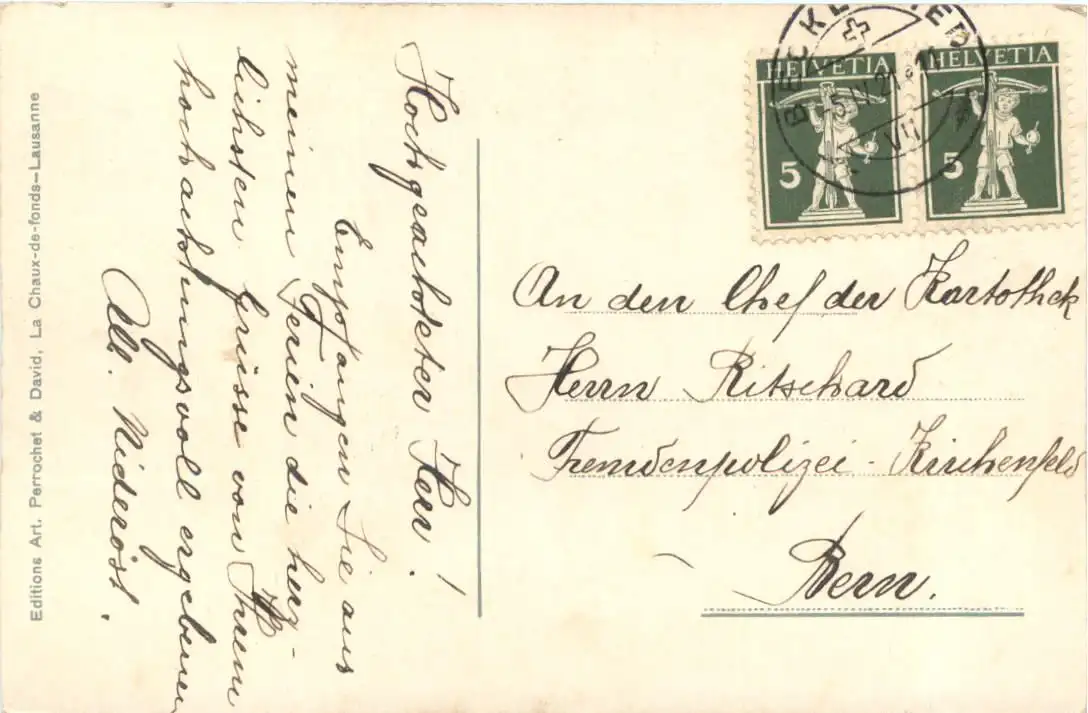 Hochgeachteter Herr!
Empfangen Sie aus
meinen Ferien die herz-
lichsten Grüsse von Ihrem
hochachtungsvoll ergebenen
Alb. Niederöst.
An den Chef der Kartothek
Herrn Ritschard
Fremdenpolizei - Kirchenfeld
Bern.
HELVETIA
5
HELVETIA
5
BECKENRIED
VII
Editions Art. Perrochet & David, La Chaux-de-fonds-Lausanne